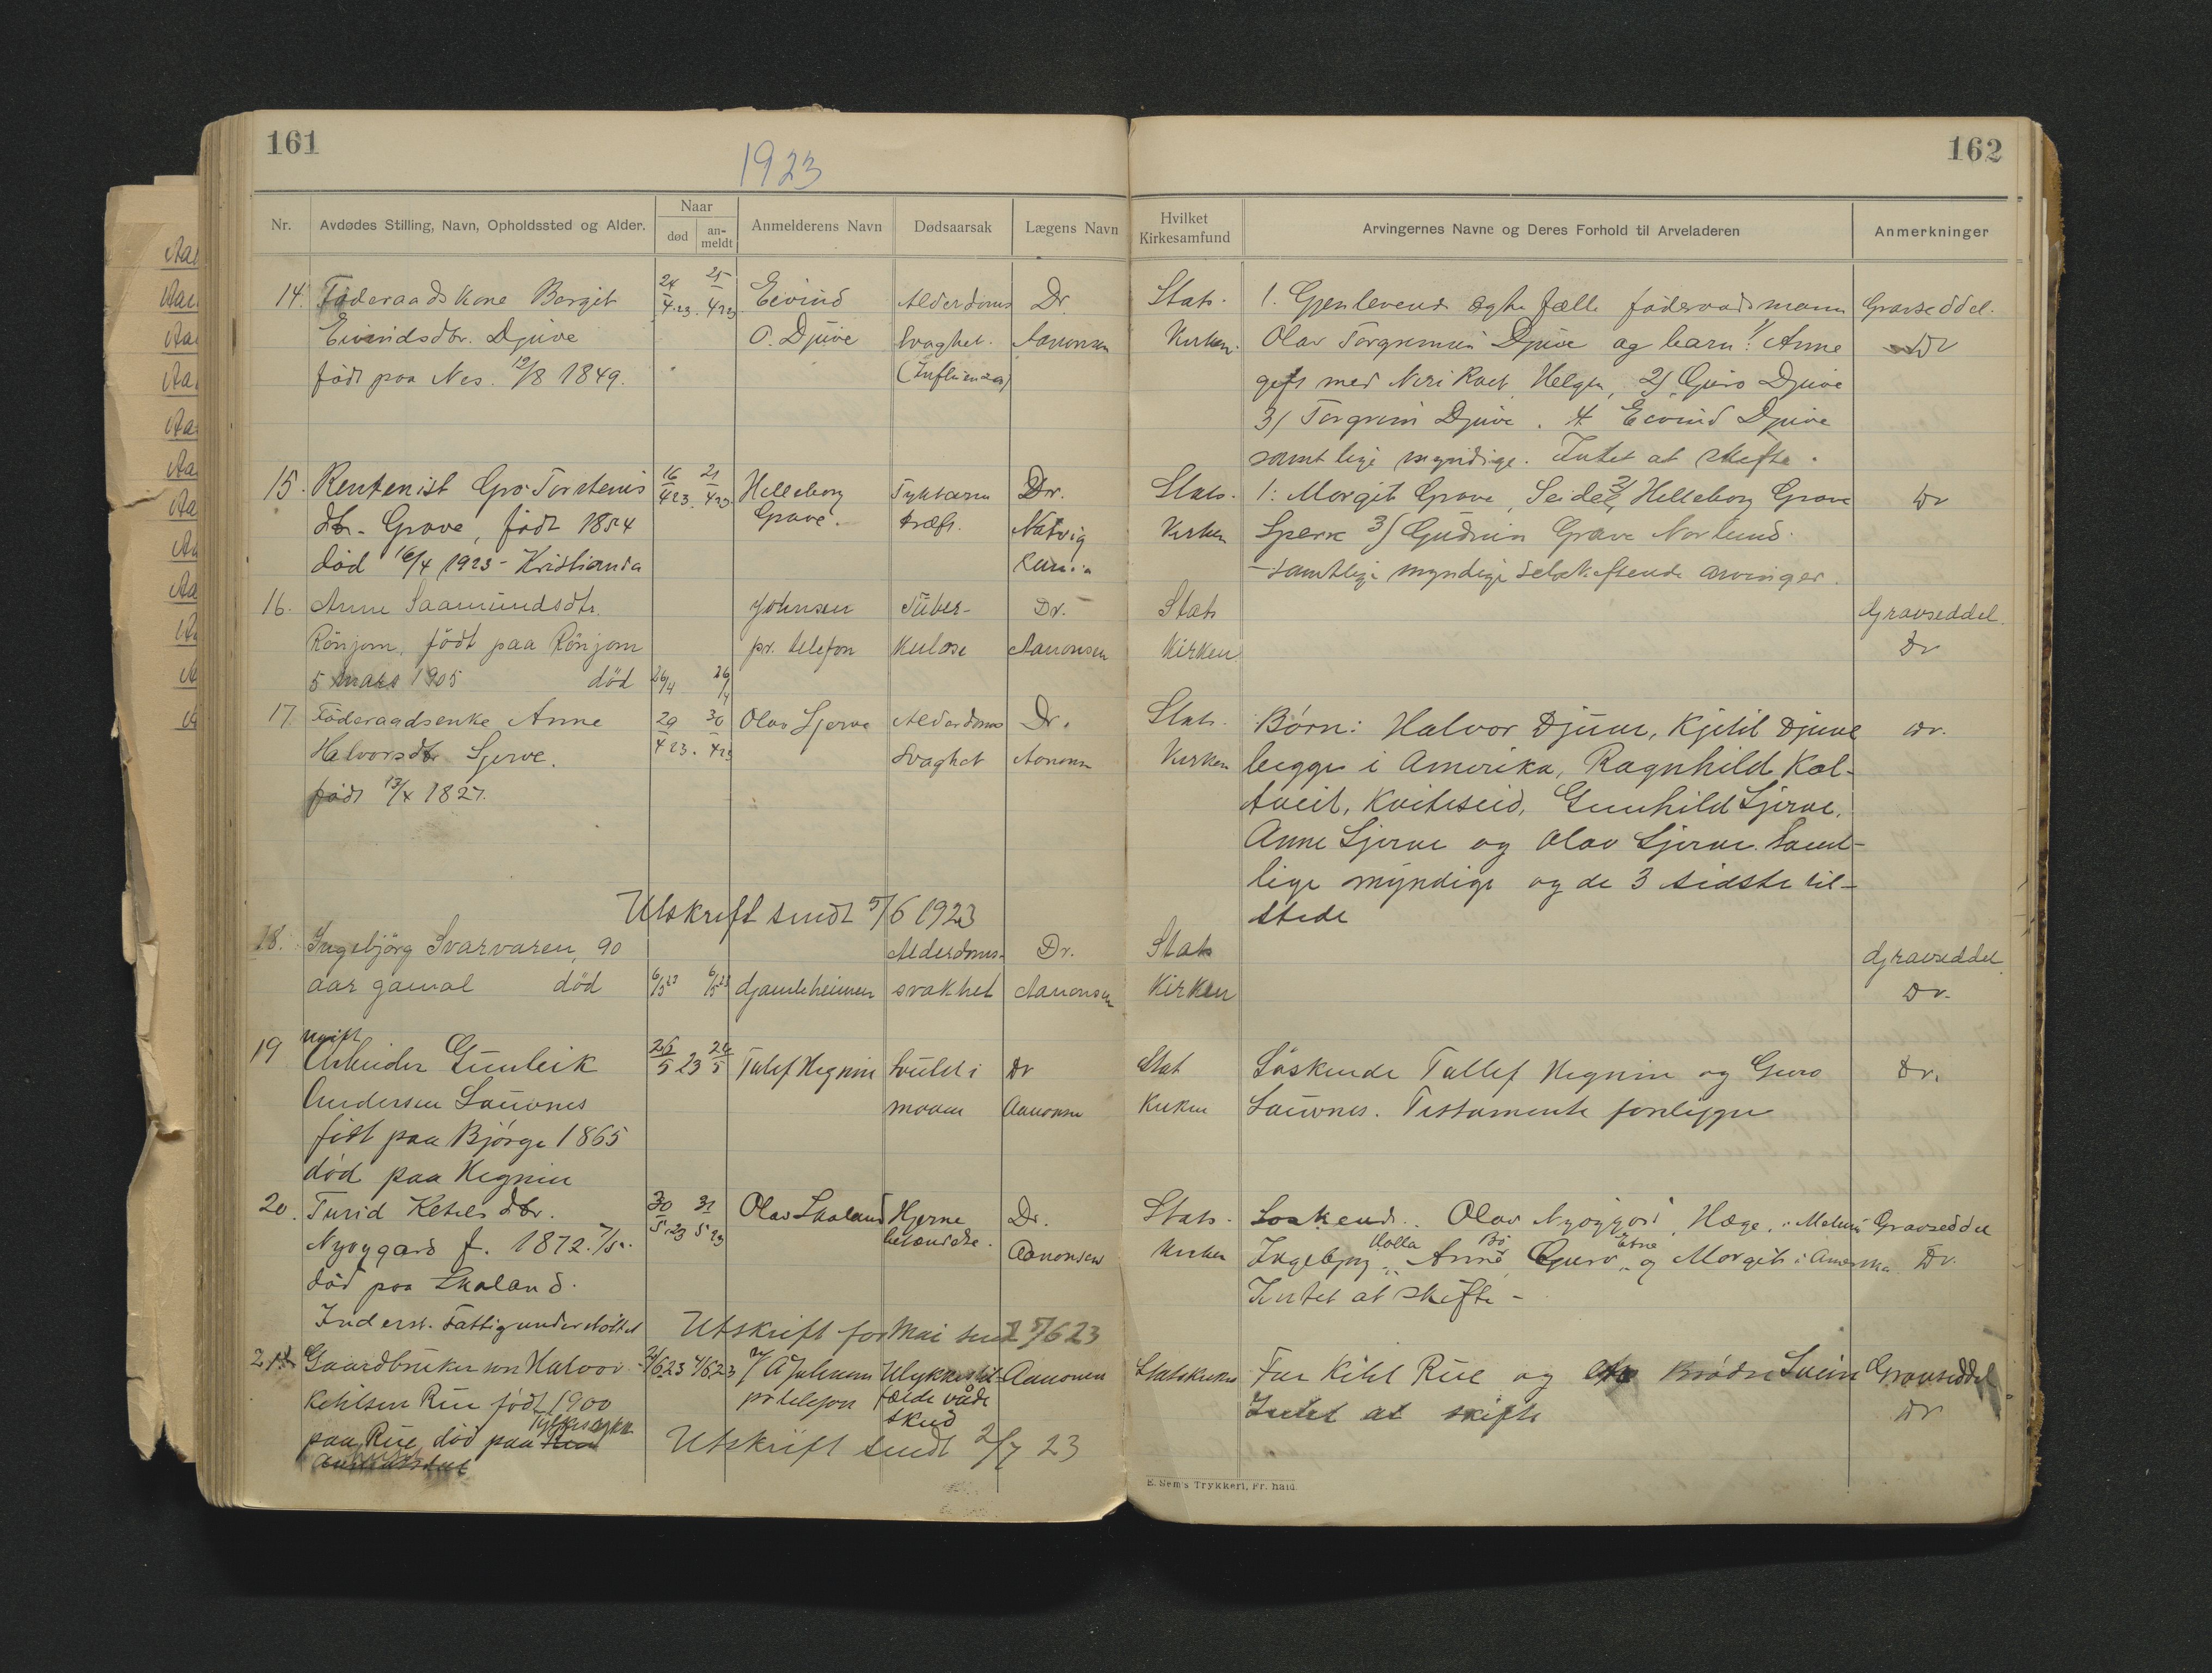 161
162
1923
Nr.
Avdødes Stilling, Navn, Opholdssted og Alder.
Naar
død
an-
meldt
Anmelderens Navn
Dødsaarsak
Lægens Navn
Hvilket
Kirkesamfund
Arvingernes Navne og Deres Forhold til Arveladeren
Anmerkninger
14. Föderaadskone Bergit 24/4.23. 25/4 23 Eivind Alderdoms Dr. Stats- 1. Gjenlevende ægtefælle föderaadsmann Gravseddel.
Eivindsdtr. Djuve O. Djuve svaghet. Aanonsen Kirken. Olav Torgrimsen Djuve og barn: 1/ Anne Dr
födt paa Nes. 12/8 1849. (Influenza) gift med Neri Helgen, 2/ Guro Djuve
3/ Torgrim Djuve. 4 Eivind Djuve
samtlige myndige. Intet at skifte.
15. Rentenist Gro Torsteins 16/4 23. 21/4 23 Helleborg Dr. Stats- 1: Morgit Grave, Seide, 2/ Helleborg Grave Dr
dtr. Grave, födt 1854 Grave. Natvig Kirken Sperre 3/ Gudrun Grave Norlund.
död 16/4 1923 - Kristiania - samtlige myndige selvskiftende arvinger.
16. Anne Saamundsdtr. Johnsen Tuber- Dr. Stats Gravseddel.
Rönjom, födt paa Rönjom pr. telefon kulose Aanonsen Kirken Dr
5 mars 1905 död 26/4 26/4
17 Föderaadsenke Anne 29/4 23. 30/4 23 Olav Sjerve Alderdoms Dr. Stats- Børn: Halvor Djuve, Kjetil Djuve Dr.
Halvorsdtr Sjerve. svaghet Aanonsen Kirken begge i Amerika, Ragnhild Kol-
födt 13/4 1827. tveit, Kviteseid, Gunhild Sjerve,
Anne Sjerve og Olav Sjerve. Samt-
lige myndige og de 3 sidste til-
stede
Utskrift sendt 5/6 1923
18. Ingebjörg Svarvaren, 90 Alderdoms- Dr. Stats Gravseddel.
aar gamal död 6/5 23 6/5 23 Gamleheimen svakhet Aanonsen Kirken Dr.
19 ugift
Arbeider Gunleik 26/5 23 26/5 Talef Hegnin Svulst i Dr Stat Söskende Tallef Hegnin og Guro Dr.
Andersen Sauvnes maven Aanonsen Kirken Sauvnes. Testamente foreligger
født paa Bjørge 1865
død paa Hegnin
20. Turid Ketilsdtr. 30/5 23 31/5 23 Olav Skaland Hjerne Dr. Stats- Søskende. Olav Nyøygard, Hæge, i Melum Gravseddel
Nyøygard f. 1872. 7/5. betændelse. Aanonsen Kirken Ingebjørg i Holla Anne Bø, Guro Etne og Morgit i Amerika Dr.
død paa Skaland. Intet at skifte -
Inderst. Fattigunderstöttet Utskrift for Mai sendt 5/6 23
21 Gaardbrukersøn Halvor 4/6 23 A Johnsen Ulykkestil- Aanonsen Statskirken Far Kitil Rue og Brødre Svein Gravseddel
Ketilsen Rue født 1900 pr telefon fælde våde Intet at skifte Dr
paa Rue død paa skud
Utskrift sendt 2/7 23
E. Sem's Trykkeri, Fr. hald.